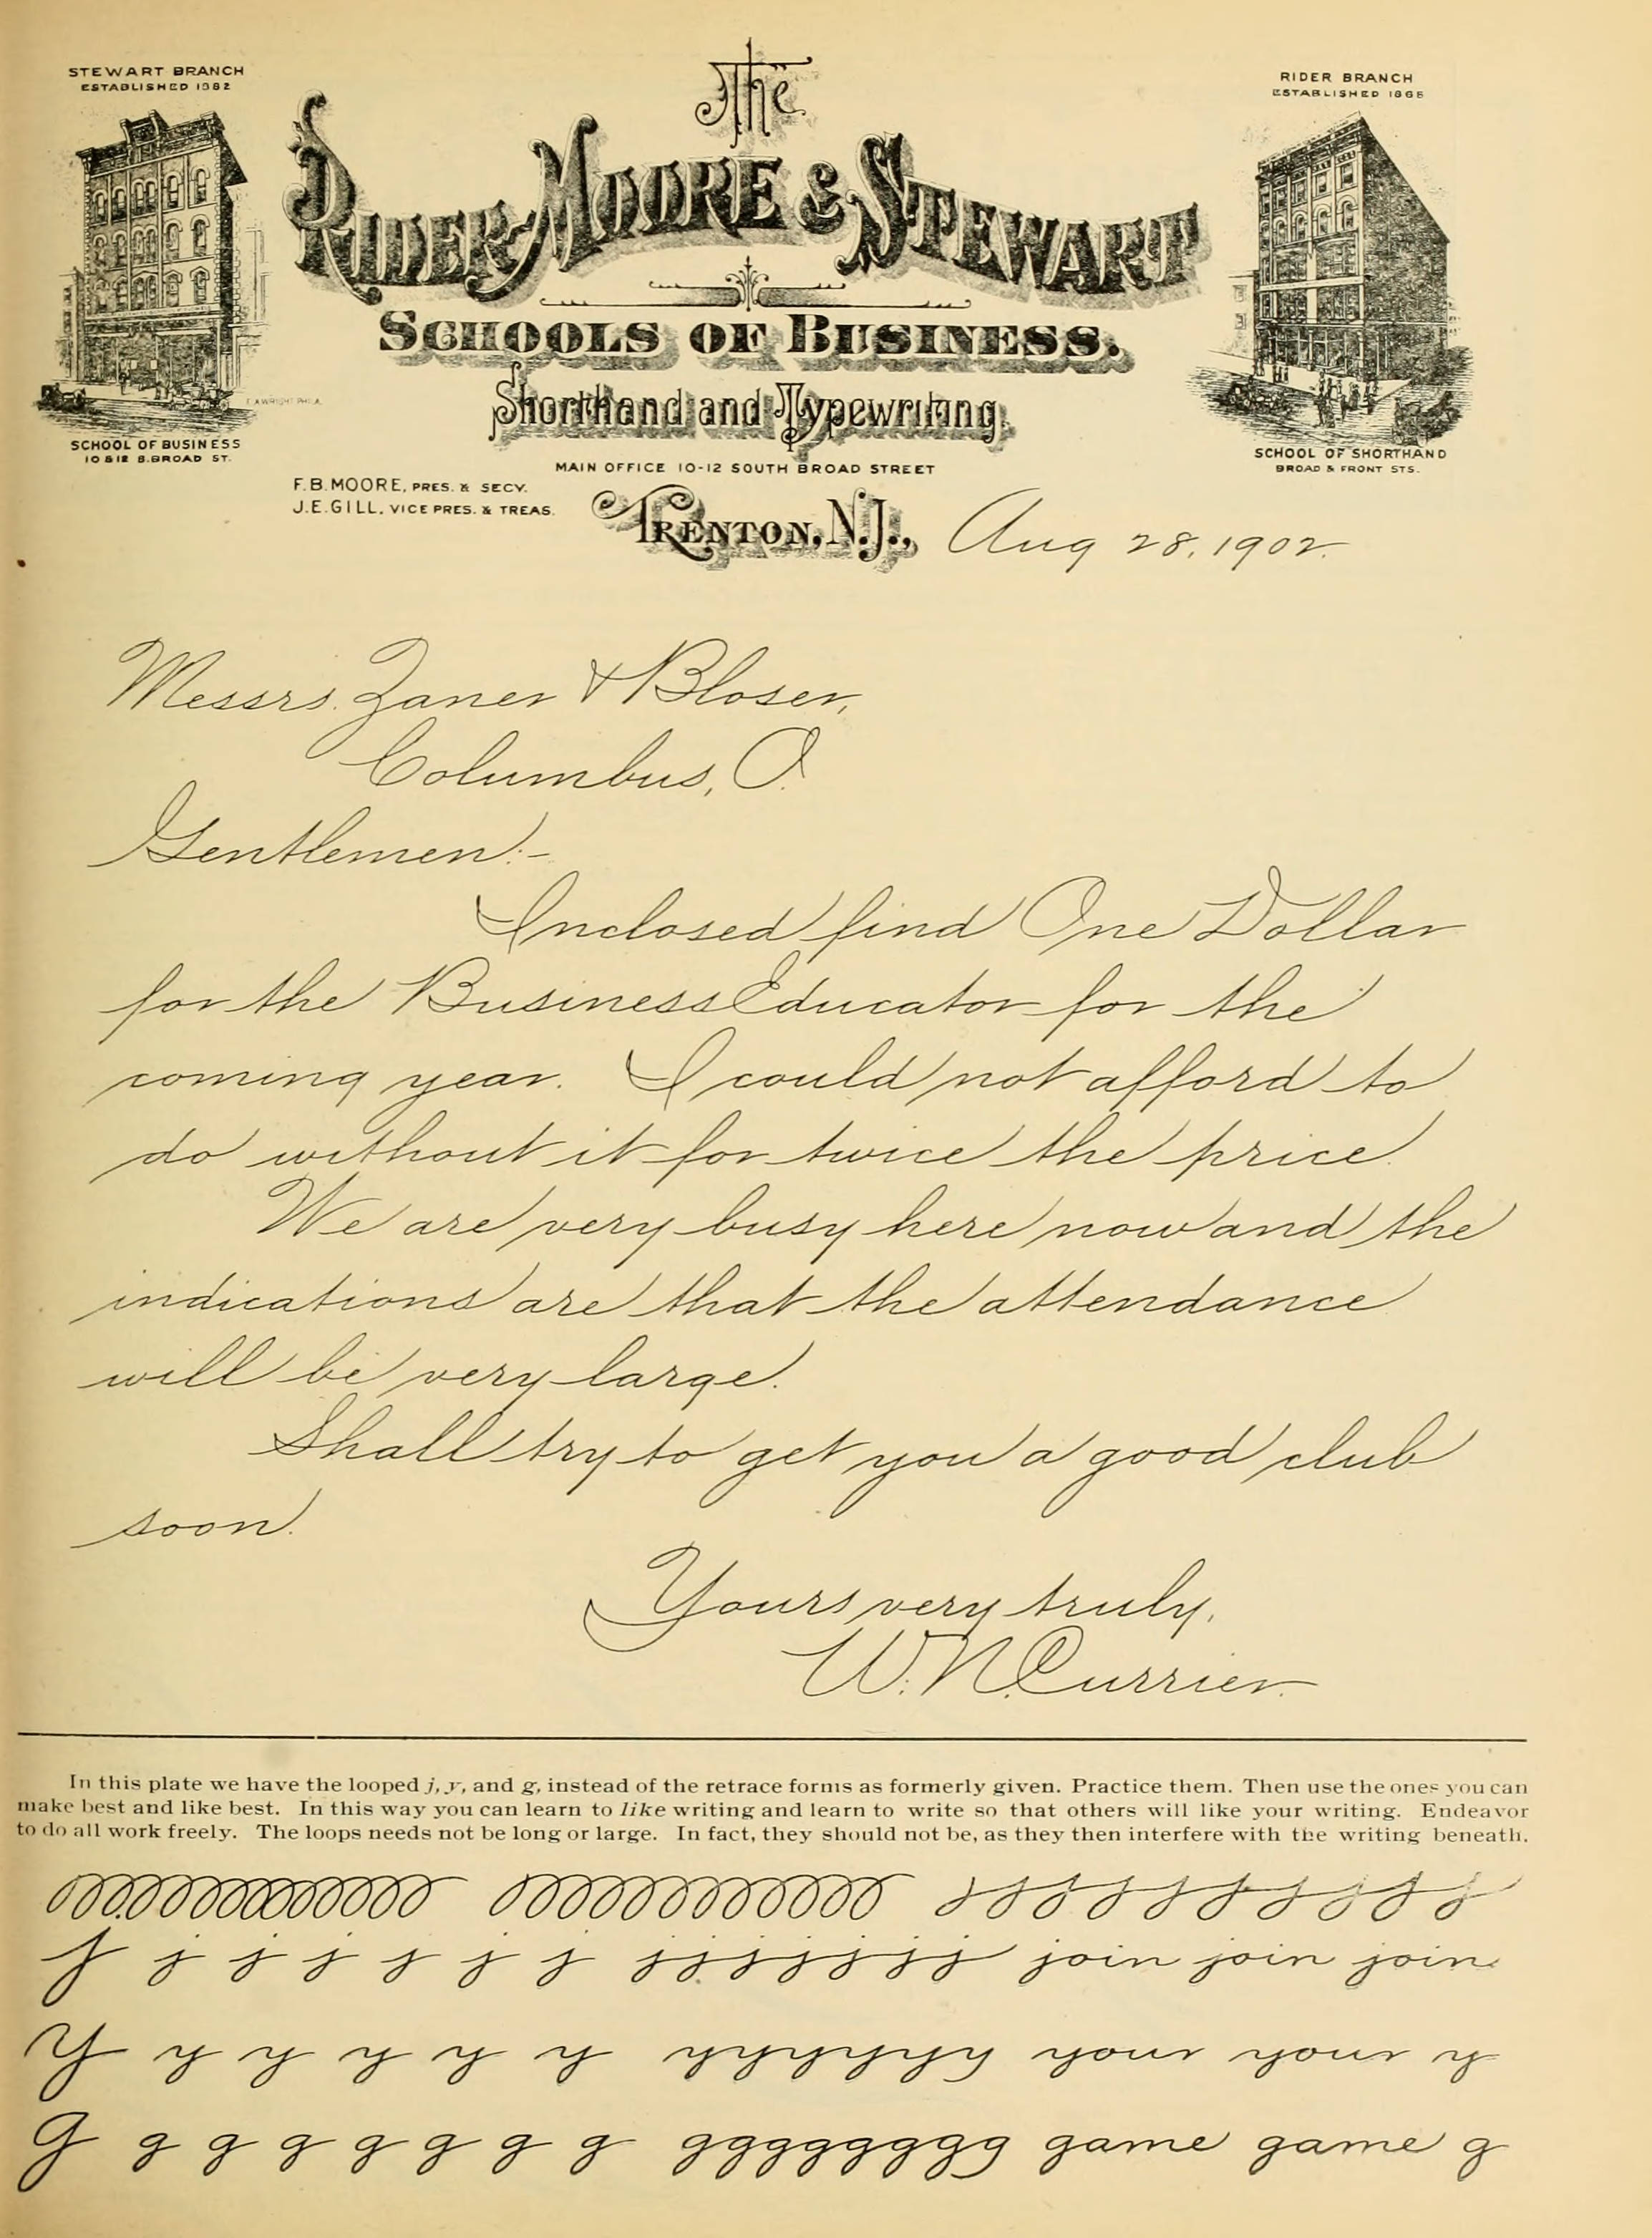 STEWART BRANCH
ESTABLISHED 1882
RIDER BRANCH
ESTABLISHED 1865
The
RIDER-MOORE & STEWART
SCHOOLS OF BUSINESS.
Shorthand and Typewriting.
SCHOOL OF BUSINESS
10 & 12 S. BROAD ST.
SCHOOL OF SHORTHAND
BROAD & FRONT STS.
MAIN OFFICE 10-12 SOUTH BROAD STREET
F.B. MOORE, PRES. & SECY.
J.E. GILL, VICE PRES. & TREAS.
TRENTON, N.J., Aug 28, 1902.
Messrs. Zaner & Bloser,
Columbus, O.
Gentlemen:-
Inclosed find One Dollar
for the Business Educator for the
coming year. I could not afford to
do without it for twice the price.
We are very busy here now and the
indications are that the attendance
will be very large.
Shall try to get you a good club
soon.
Yours very truly,
W. N. Currier.
In this plate we have the looped j, y, and g, instead of the retrace forms as formerly given. Practice them. Then use the ones you can
make best and like best. In this way you can learn to like writing and learn to write so that others will like your writing. Endeavor
to do all work freely. The loops needs not be long or large. In fact, they should not be, as they then interfere with the writing beneath.
j j j j j j j jjjjjjj join join join
y y y y y y yyyyyyy your your y
g g g g g g g g gggggggg game game g